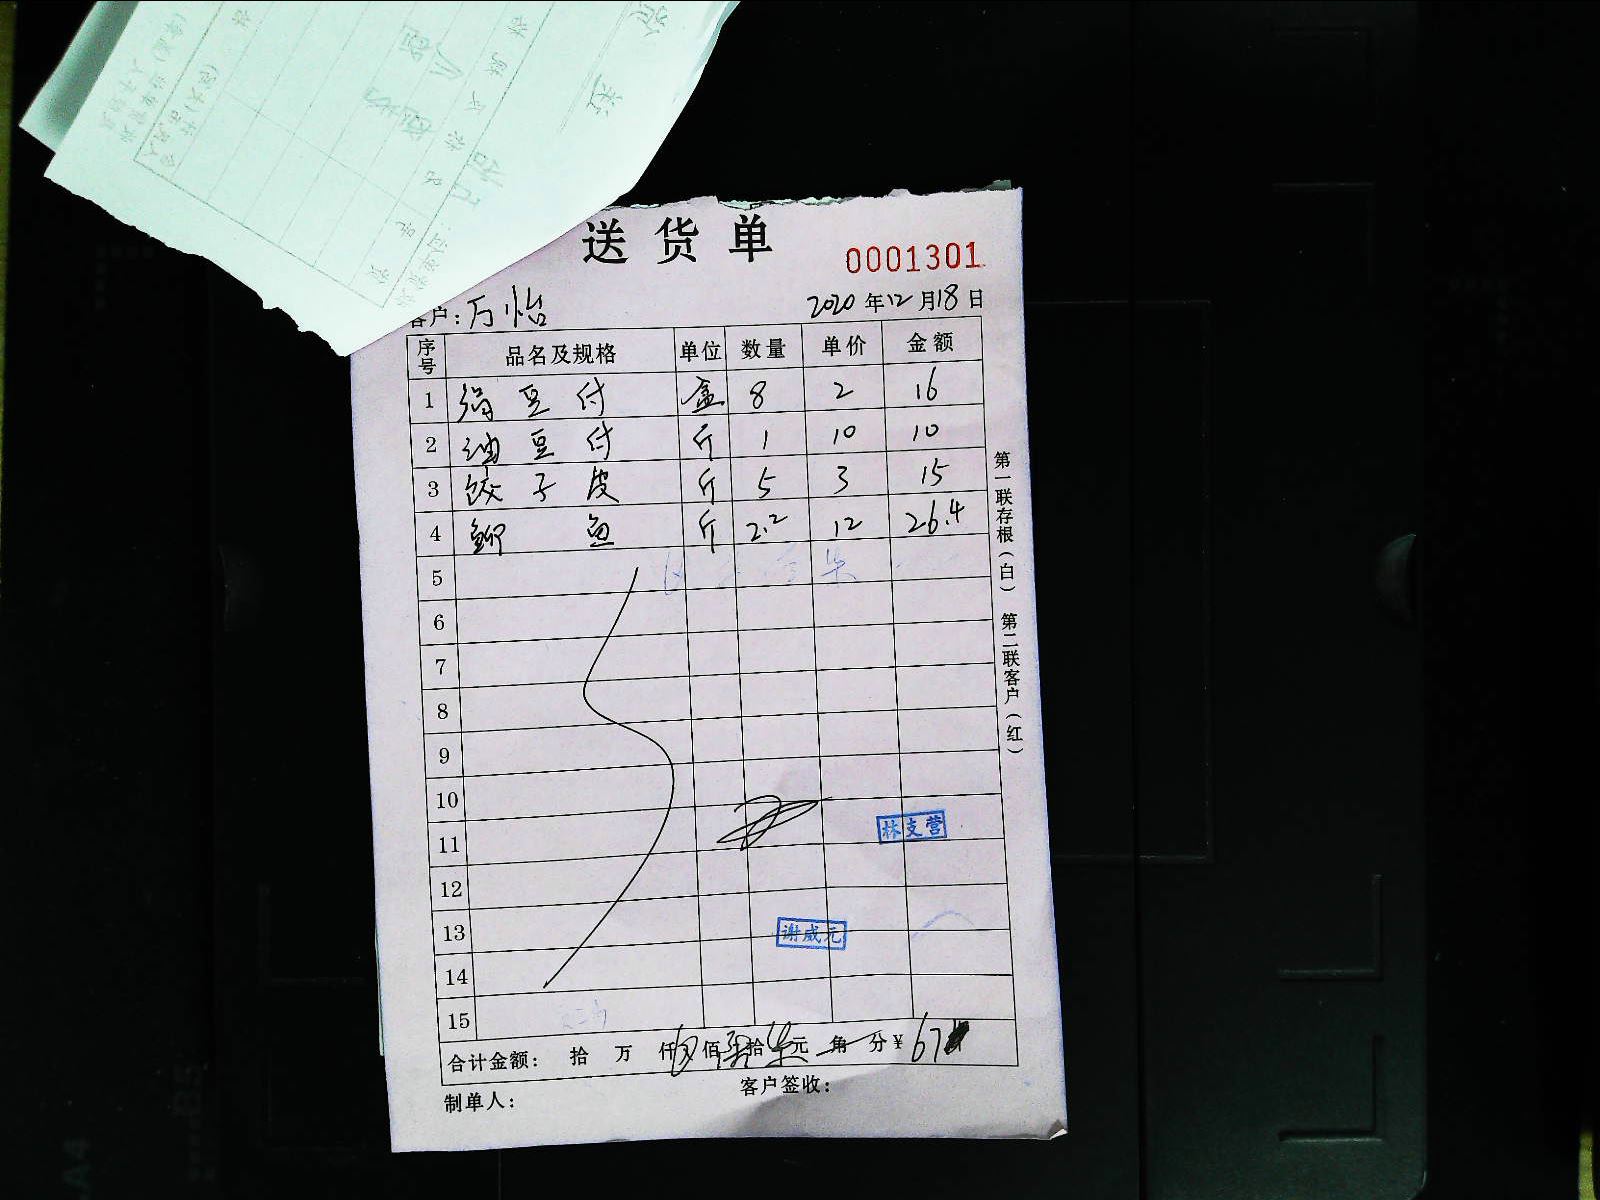 送货单
0001301
客户：万怡
2020年12月18日
序号 品名及规格 单位 数量 单价 金额
1 绢豆付 盒 8 2 16
2 油豆付 斤 1 10 10
3 饺子皮 斤 5 3 15
4 鲫鱼 斤 2.2 12 26.4
5
6
7
8
9
10
11
林支营
12
13
谢威元
14
15
合计金额： 拾 万 仟 佰 陆拾 柒元 角 分 ¥ 67
制单人：
客户签收：
第一联存根（白） 第二联客户（红）